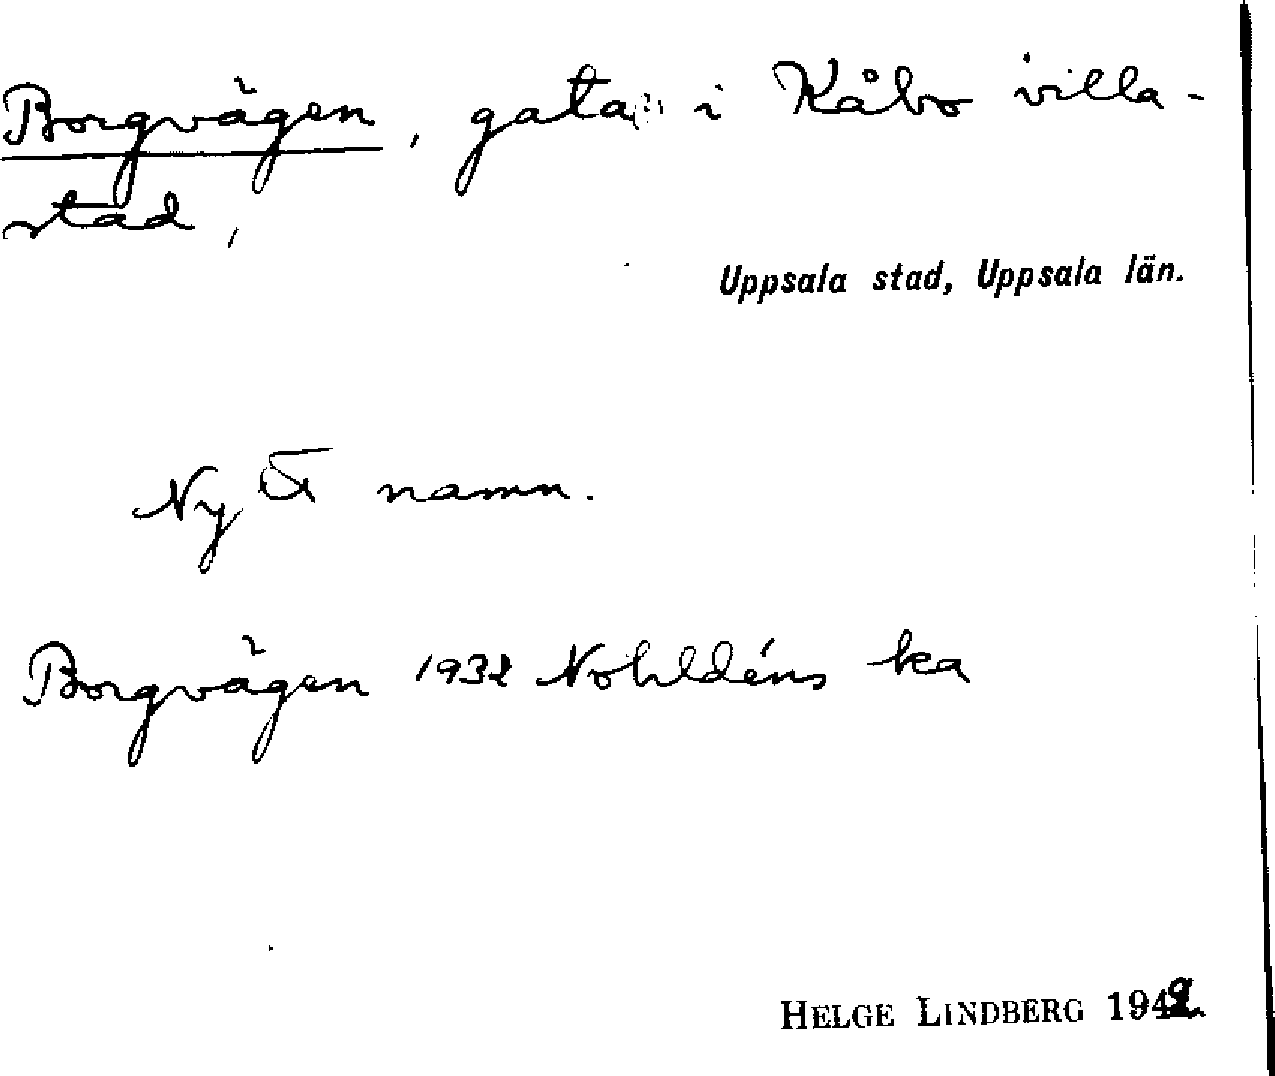 Borgvägen, gata i Kåbo villa-
stad,
Uppsala stad, Uppsala län.
Nytt namn.
Borgvägen 1932 Nohldéns ka
HELGE LINDBERG 1942.